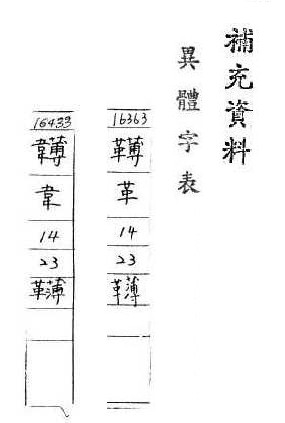 補充資料
異體字表
16363
革
14
23
16433
韋
14
23